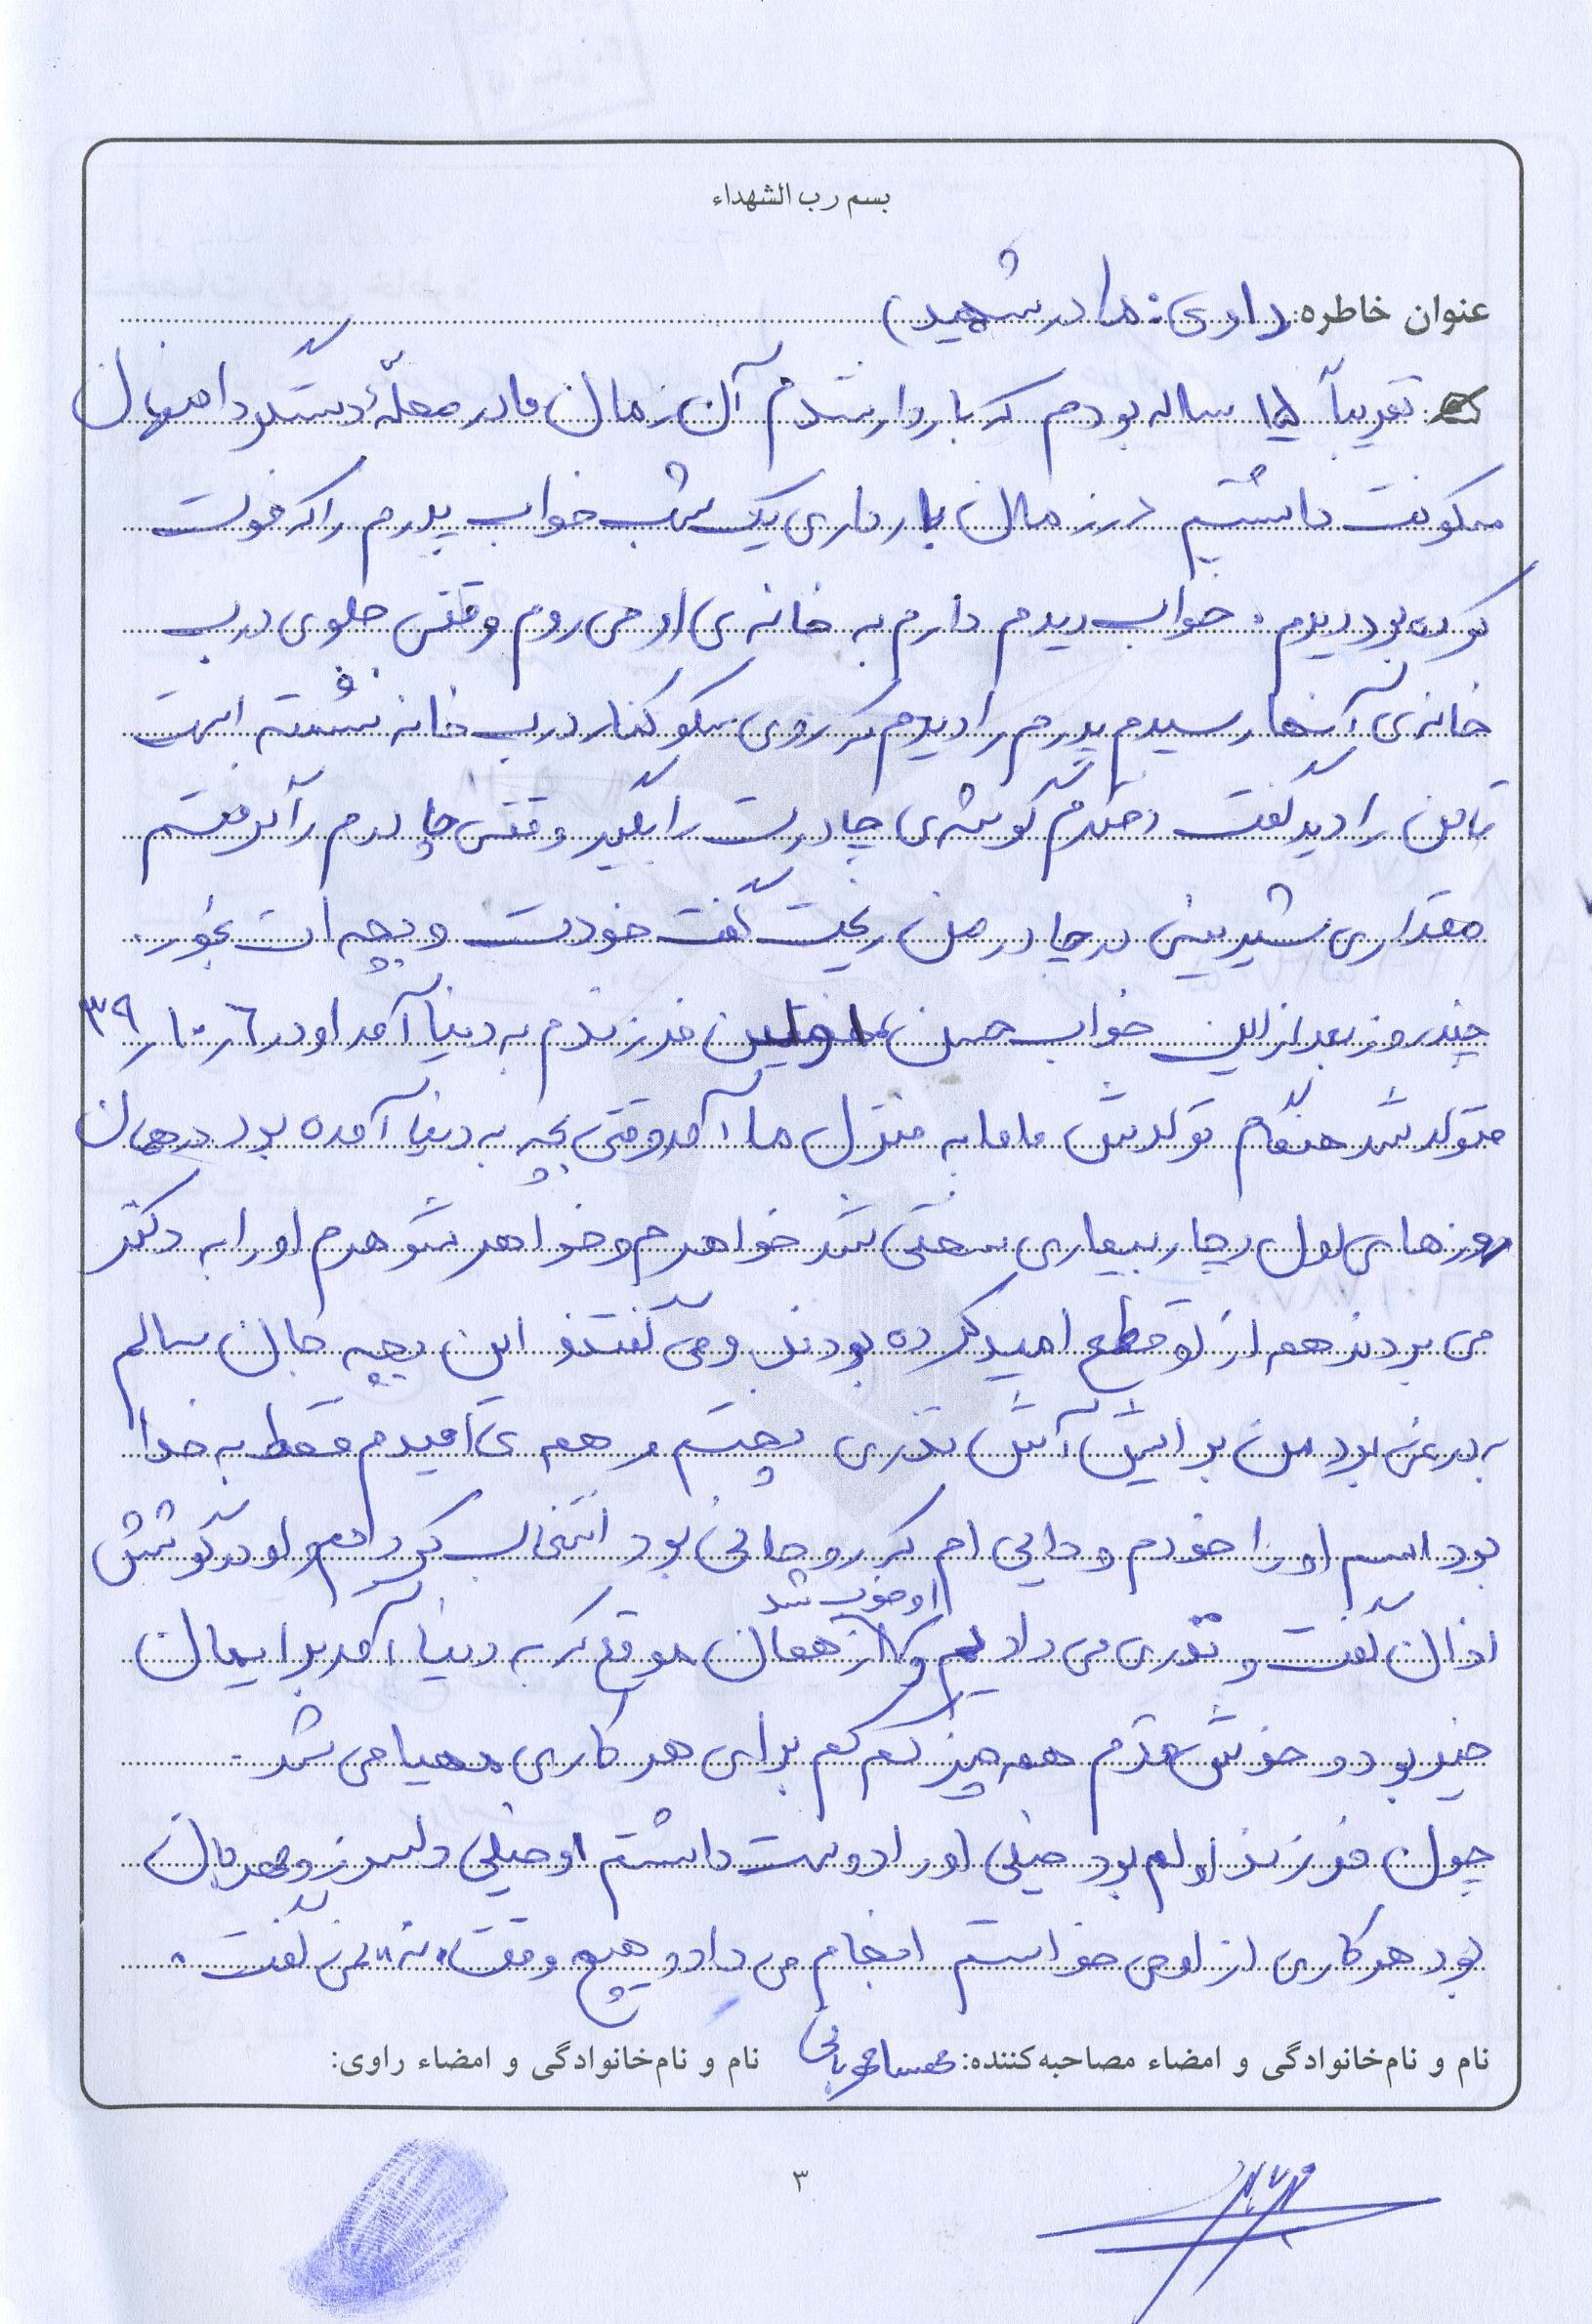 بسم رب الشهداء
عنوان خاطره: راوی: مادر شهید)
تقریباً ۱۵ ساله بودم که باردار شدم آن زمان ما در محلّهٔ دستگرد اصفهان
سکونت داشتیم در زمان بارداری یک شب خواب پدرم را که فوت
کرده بود دیدم. خواب دیدم دارم به خانه ی او می روم وقتی جلوی درب
خانه ی آنها رسیدم پدرم را دیدم که روی سکو کنار درب خانه نشسته است
تا من را دید گفت دخترم گوشه ی چادرت را بگیر وقتی چادرم را گرفتم
مقداری شیرینی در چادر من ریخت گفت خودت و بچه ات بخور.
چند روز بعد از این خواب حسن اولین فرزندم به دنیا آمد او در ۳۹/۱۰/۶
متولد شد هنگام تولدش ماما به منزل ما آمد وقتی بچه به دنیا آمده بود در همان
روزهای اول دچار بیماری سختی شد خواهرم و خواهر شوهرم او را به دکتر
می بردند همه از او قطع امید کرده بودند و می گفتند این بچه جان سالم
به در نمی برد من برایش آش نذری پختم و همه ی امیدم فقط به خدا
بود اسم او را خودم و دایی ام که روحانی بود انتخاب کردیم و او در گوشش
اذان گفت و نذری می دادیم و او خوب شد از همان موقع که به دنیا آمد برایمان
خیر بود و خوش قدم همه چیز کم کم برای هر کاری مهیا می شد.
چون فرزند اولم بود خیلی او را دوست داشتم او خیلی دلسوز و مهربان
بود هر کاری از او می خواستم انجام می داد و هیچ وقت «نه» نمی گفت.
نام و نام‌خانوادگی و امضاء مصاحبه‌کننده: مهسا مهربانی نام و نام‌خانوادگی و امضاء راوی:
۳